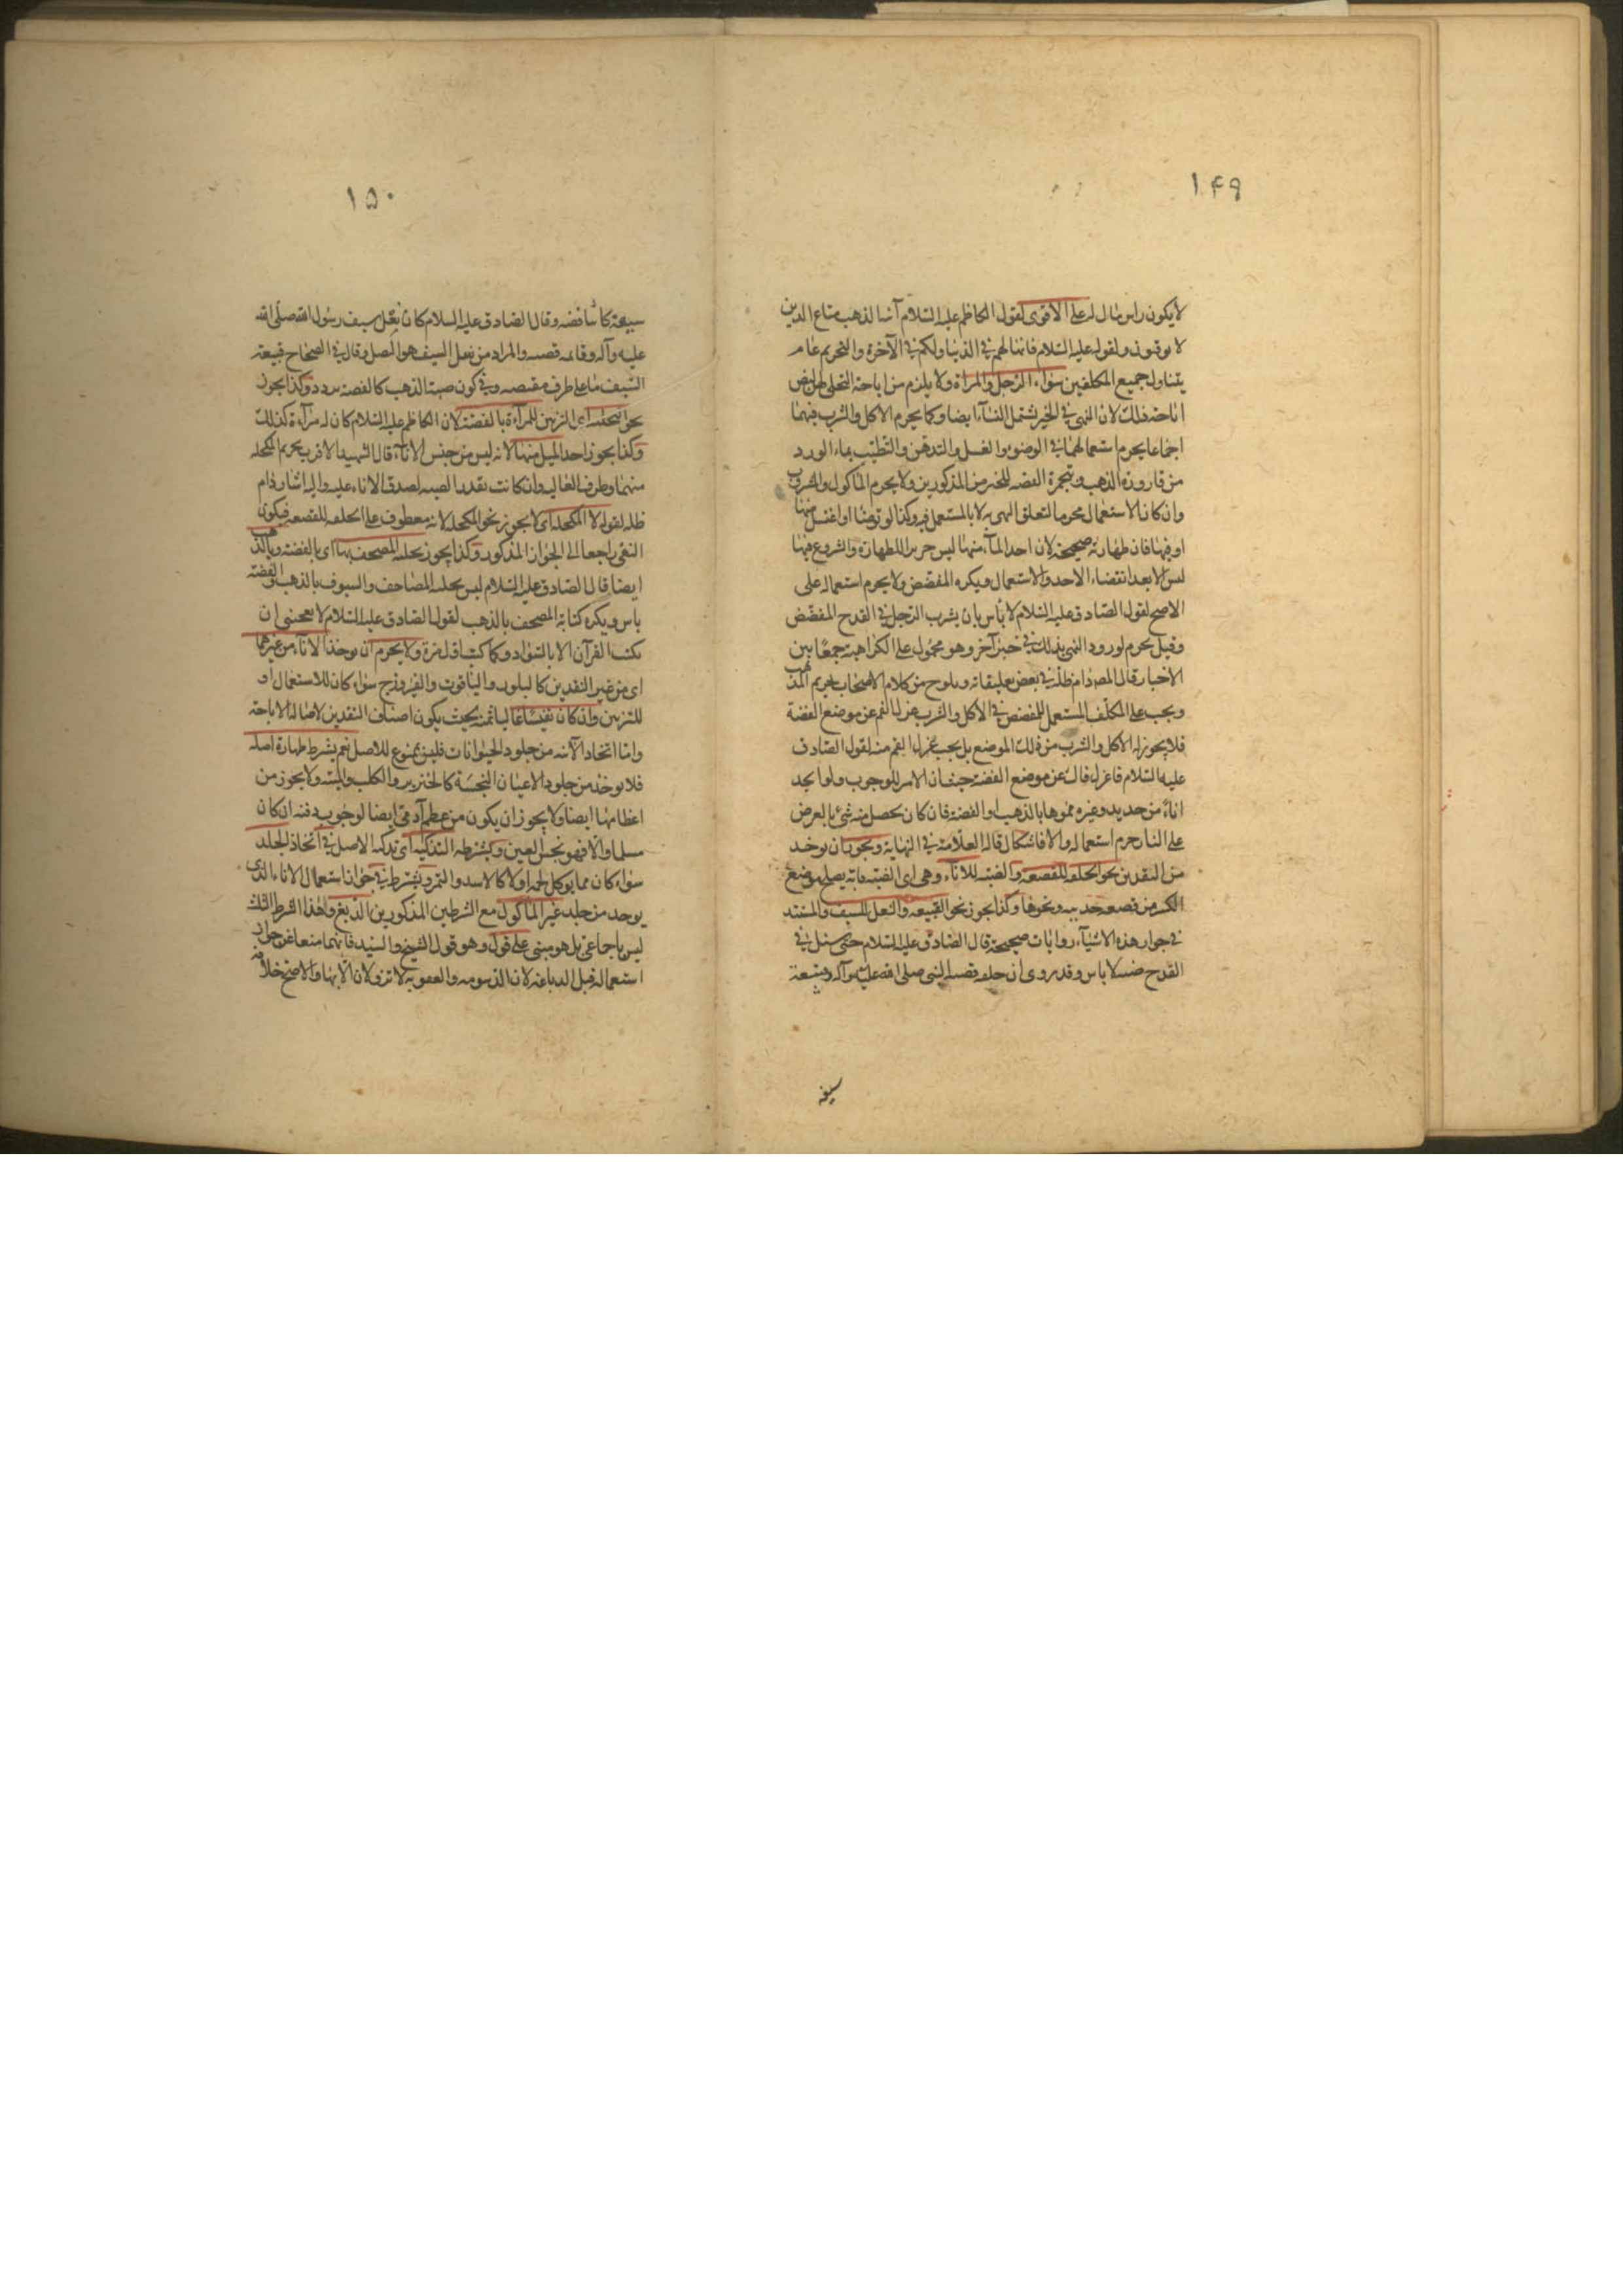 ١۴٩
لا يكون راس مال له على الاقوى لقول الكاظم عليه السلام آنية الذهب متاع الذين
لا يوقنون ولقوله عليه السلام فانها لهم في الدنيا ولكم في الآخرة والتحريم عام
يتناول جميع المكلفين سواء الرجل والمراة ولا يلزم من اباحة التحلى لهن
اباحة ذلك لان النهي في الخبر تشمل النساء ايضا وكما يحرم الاكل والشرب فيهما
اجماعا يحرم استعمالهما في الوضوء والغسل والتدهن والتطيب بماء الورد
من قارورة الذهب وبتجمرة الفضه للخبرين المذكورين ولا يحرم الماكول والمشروب
وان كان الاستعمال محرما لتعلق النهى به لا بالمستعمل فيه وكذا لو توضا او اغتسل منها
او فيها فان طهارته صحيحة لان احد الماء منها ليس جزءا للطهارة والشروع فيها
ليس الا بعد انقضاء الاخذ والاستعمال ويكره المفضض ولا يحرم استعماله على
الاصح لقول الصادق عليه السلام لا باس بان يشرب الرجل في القدح المفضض
وقيل يحرم لورود النهى بذلك في خبر آخر وهو محمول على الكراهية جمعا بين
الاخبار قال المص دام ظله في بعض تعليقاته ويلوح من كلام الاصحاب تحريم المذهب
ويجب على المكلف المستعمل للمفضض في الاكل والشرب عزل الفم عن موضع الفضة
فلا يجوز له الاكل والشرب من ذلك الموضع بل يجب عزل الفم منه لقول الصادق
عليه السلام فاعزل فاك عن موضع الفضة حيث ان الامر للوجوب ولو اتخذ
اناء من حديد وغيره مموها بالذهب او الفضة فان كان يحصل منه شئ بالعرض
على النار حرم استعماله والا فاشكال قاله العلامة في النهاية ويجوز ان يوخذ
من النقدين نحو الحلقه للقصعة والضبه للاناء وهي اى الضبه ما به يصلح موضع
الكسر من قصعه حديد ونحوها وكذا يجوز نحو القبيعه والنعل للسيف والمستند
في جواز هذه الاشياء روايات صحيحة قال الصادق عليه السلام حين سئل في
القدح ضبه لا باس وقد روى ان حلقه قصعه النبى صلى الله عليه وآله وقبيعة
سيفه
١۵٠
سيفه كانتا فضه وقال الصادق عليه السلام كان نعل سيف رسول الله صلى الله
عليه وآله وقائمه فضه والمراد من نعل السيف هو وقال في الصحاح قبيعة
السيف ما على طرف مقبضه وفي كون ضبة الذهب كالفضه تردد وكذا يجوز
نحو اى التزين للمرآة بالفضة لان الكاظم عليه السلام كان له مرآة كذلك
وكذا يجوز اخذ الميل منها لانه ليس من جنس الاناء قال الشهيد الاقرب تحريم المكحله
منهما وظرف الغاليه وان كانت بقدر الضبه لصدق الاناء عليه واليه اشار دام
ظله لقوله لا المكحله اى لا يجوز نحو المكحله لانه معطوف على الحلقه للقصعه فيكون
النفى راجعا الى الجواز المذكور وكذا يجوز تحليه المصحف بها اى بالفضة وبالذهب
ايضا قال الصادق عليه السلام ليس بتحليه المصاحف والسيوف بالذهب والفضة
باس ويكره كتابة المصحف بالذهب لقول الصادق عليه السلام لا يعجبنى ان
يكتب القرآن الا بالسواد وكما كتب اول مرة ولا يحرم ان يوخذ الاناء من غيرهما
اى من غير النقدين كالبلور والياقوت والفيروزج سواء كان للاستعمال او
للتزيين وان كان نفيسا غاليا ثمنه بحيث يكون اضعاف النقدين لاصالة الاباحة
واما اتخاذ الآنيه من جلود الحيوانات فليس بممنوع للاصل نعم يشرط طهارة اصله
فلا يوخذ من جلود الاعيان النجسة كالخنزير والكلب والميته ولا يجوز من
عظامها ايضا ولا يجوز ان يكون من عظم آدمي ايضا لوجوب دفنه ان كان
مسلما والا فهو نجس العين ويشترط التذكيه اى تذكيه الاصل في اتخاذ الجلد
سواء كان مما يوكل لحمه او لا كالاسد والنمر ويشترط في جواز استعمال الاناء الذى
يوخذ من جلد غير الماكول مع الشرطين المذكورين الدبغ وهذا الشرط الثالث
ليس باجماعي بل هو مبنى على قول وهو قول الشيخ والسيد فانهما منعا عن جواز
استعماله قبل الدباغه لان الدسومه والعفونه لا تزولان الا بها والاصح خلافه